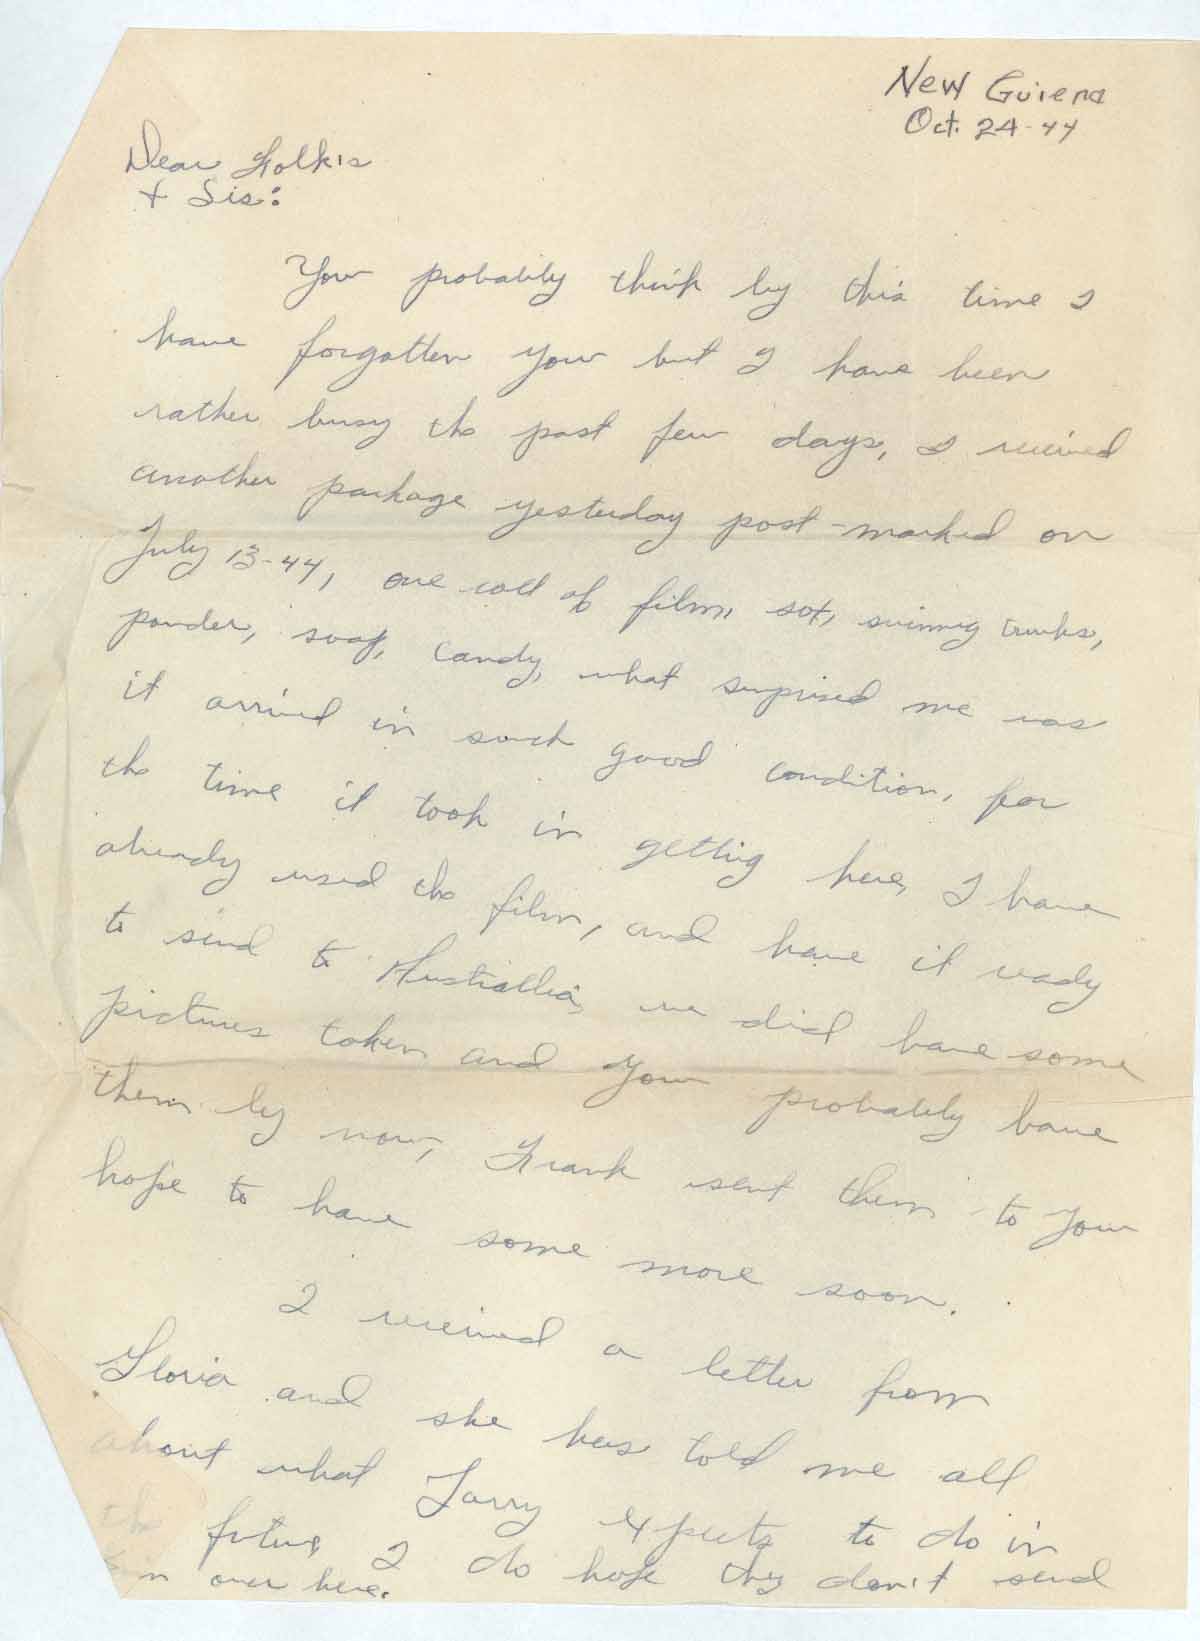 New Guiena
Oct. 24-44
Dear Folk's
+ Sis:
You probably think by this time I
have forgotten you but I have been
rather busy the past few days, I recieved
another package yesterday post-marked on
July 13-44, one roll of film, sox, swimmig trunks,
powder, soap, candy, what surprised me was
it arrived in such good condition, for
the time it took in getting here, I have
already used the film, and have it ready
to send to Australlia, we did have some
pictures taken and you probably have
them by now, Frank sent them to you
hope to have some more soon.
I received a letter from
Gloria and she has told me all
about what Larry expects to do in
the future, I do hope they don't send
over here.